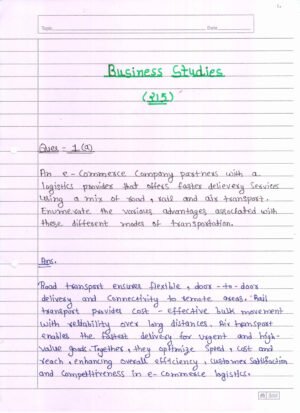 Topic
Date
Business Studies
(215)
Ques - 1 (a)
An e-Commerce Company partners with a
logistics provider that offers faster delievery Services
using a mix of road, rail and air transport.
Enumerate the various advantages associated with
these different modes of transportation.
Ans.
Road transport ensures flexible, door-to-door
delivery and Connectivity to remote areas. Rail
transport provides cost-effective bulk movement
with reliability over long distances. Air transport
enables the fastest delivery for urgent and high-
value goods. Together, they optimize Speed, Cost and
reach, enhancing overall efficiency, Customer Satisfaction
and Competitiveness in e-Commerce logistics.